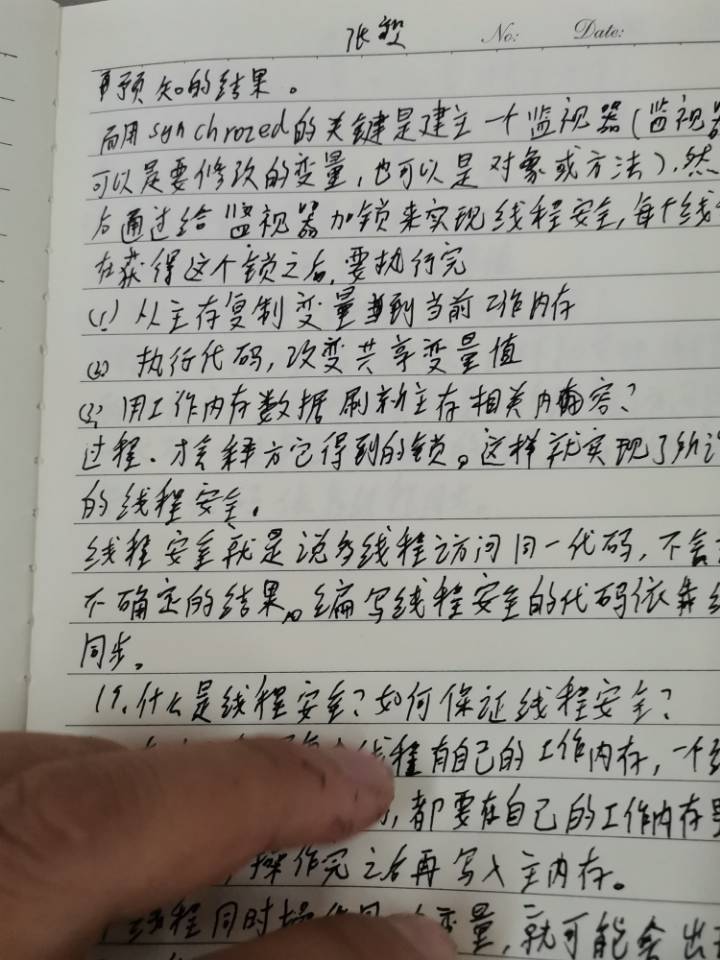 张毅 No: Date:
再预知的结果。
而用synchrozed的关键是建立一个监视器(监视器
可以是要修改的变量,也可以是对象或方法),然
后通过给监视器加锁来实现线程安全,每个线
在获得这个锁之后,要执行完
(1) 从主存复制变量到当前工作内存
(2) 执行代码,改变共享变量值
(3) 用工作内存数据刷新主存相关内容?
过程.才会释方它得到的锁。这样就实现了所
的线程安全.
线程安全就是说多线程访问同一代码,不会
不确定的结果。编写线程安全的代码依靠
同步。
19.什么是线程安全?如何保证线程安全?
线程有自己的工作内存,一个
,都要在自己的工作内存
,操作完之后再写入主内存。
线程同时操作同 变量,就可能会出